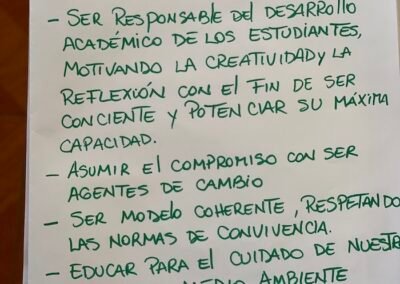 - SER RESPONSABLE DEL DESARROLLO
ACADÉMICO DE LOS ESTUDIANTES,
MOTIVANDO LA CREATIVIDAD Y LA
REFLEXIÓN CON EL FIN DE SER
CONCIENTE Y POTENCIAR SU MÁXIMA
CAPACIDAD.
- ASUMIR EL COMPROMISO CON SER
AGENTES DE CAMBIO
- SER MODELO COHERENTE, RESPETANDO
LAS NORMAS DE CONVIVENCIA.
- EDUCAR PARA EL CUIDADO DE NUESTRO
MEDIO AMBIENTE